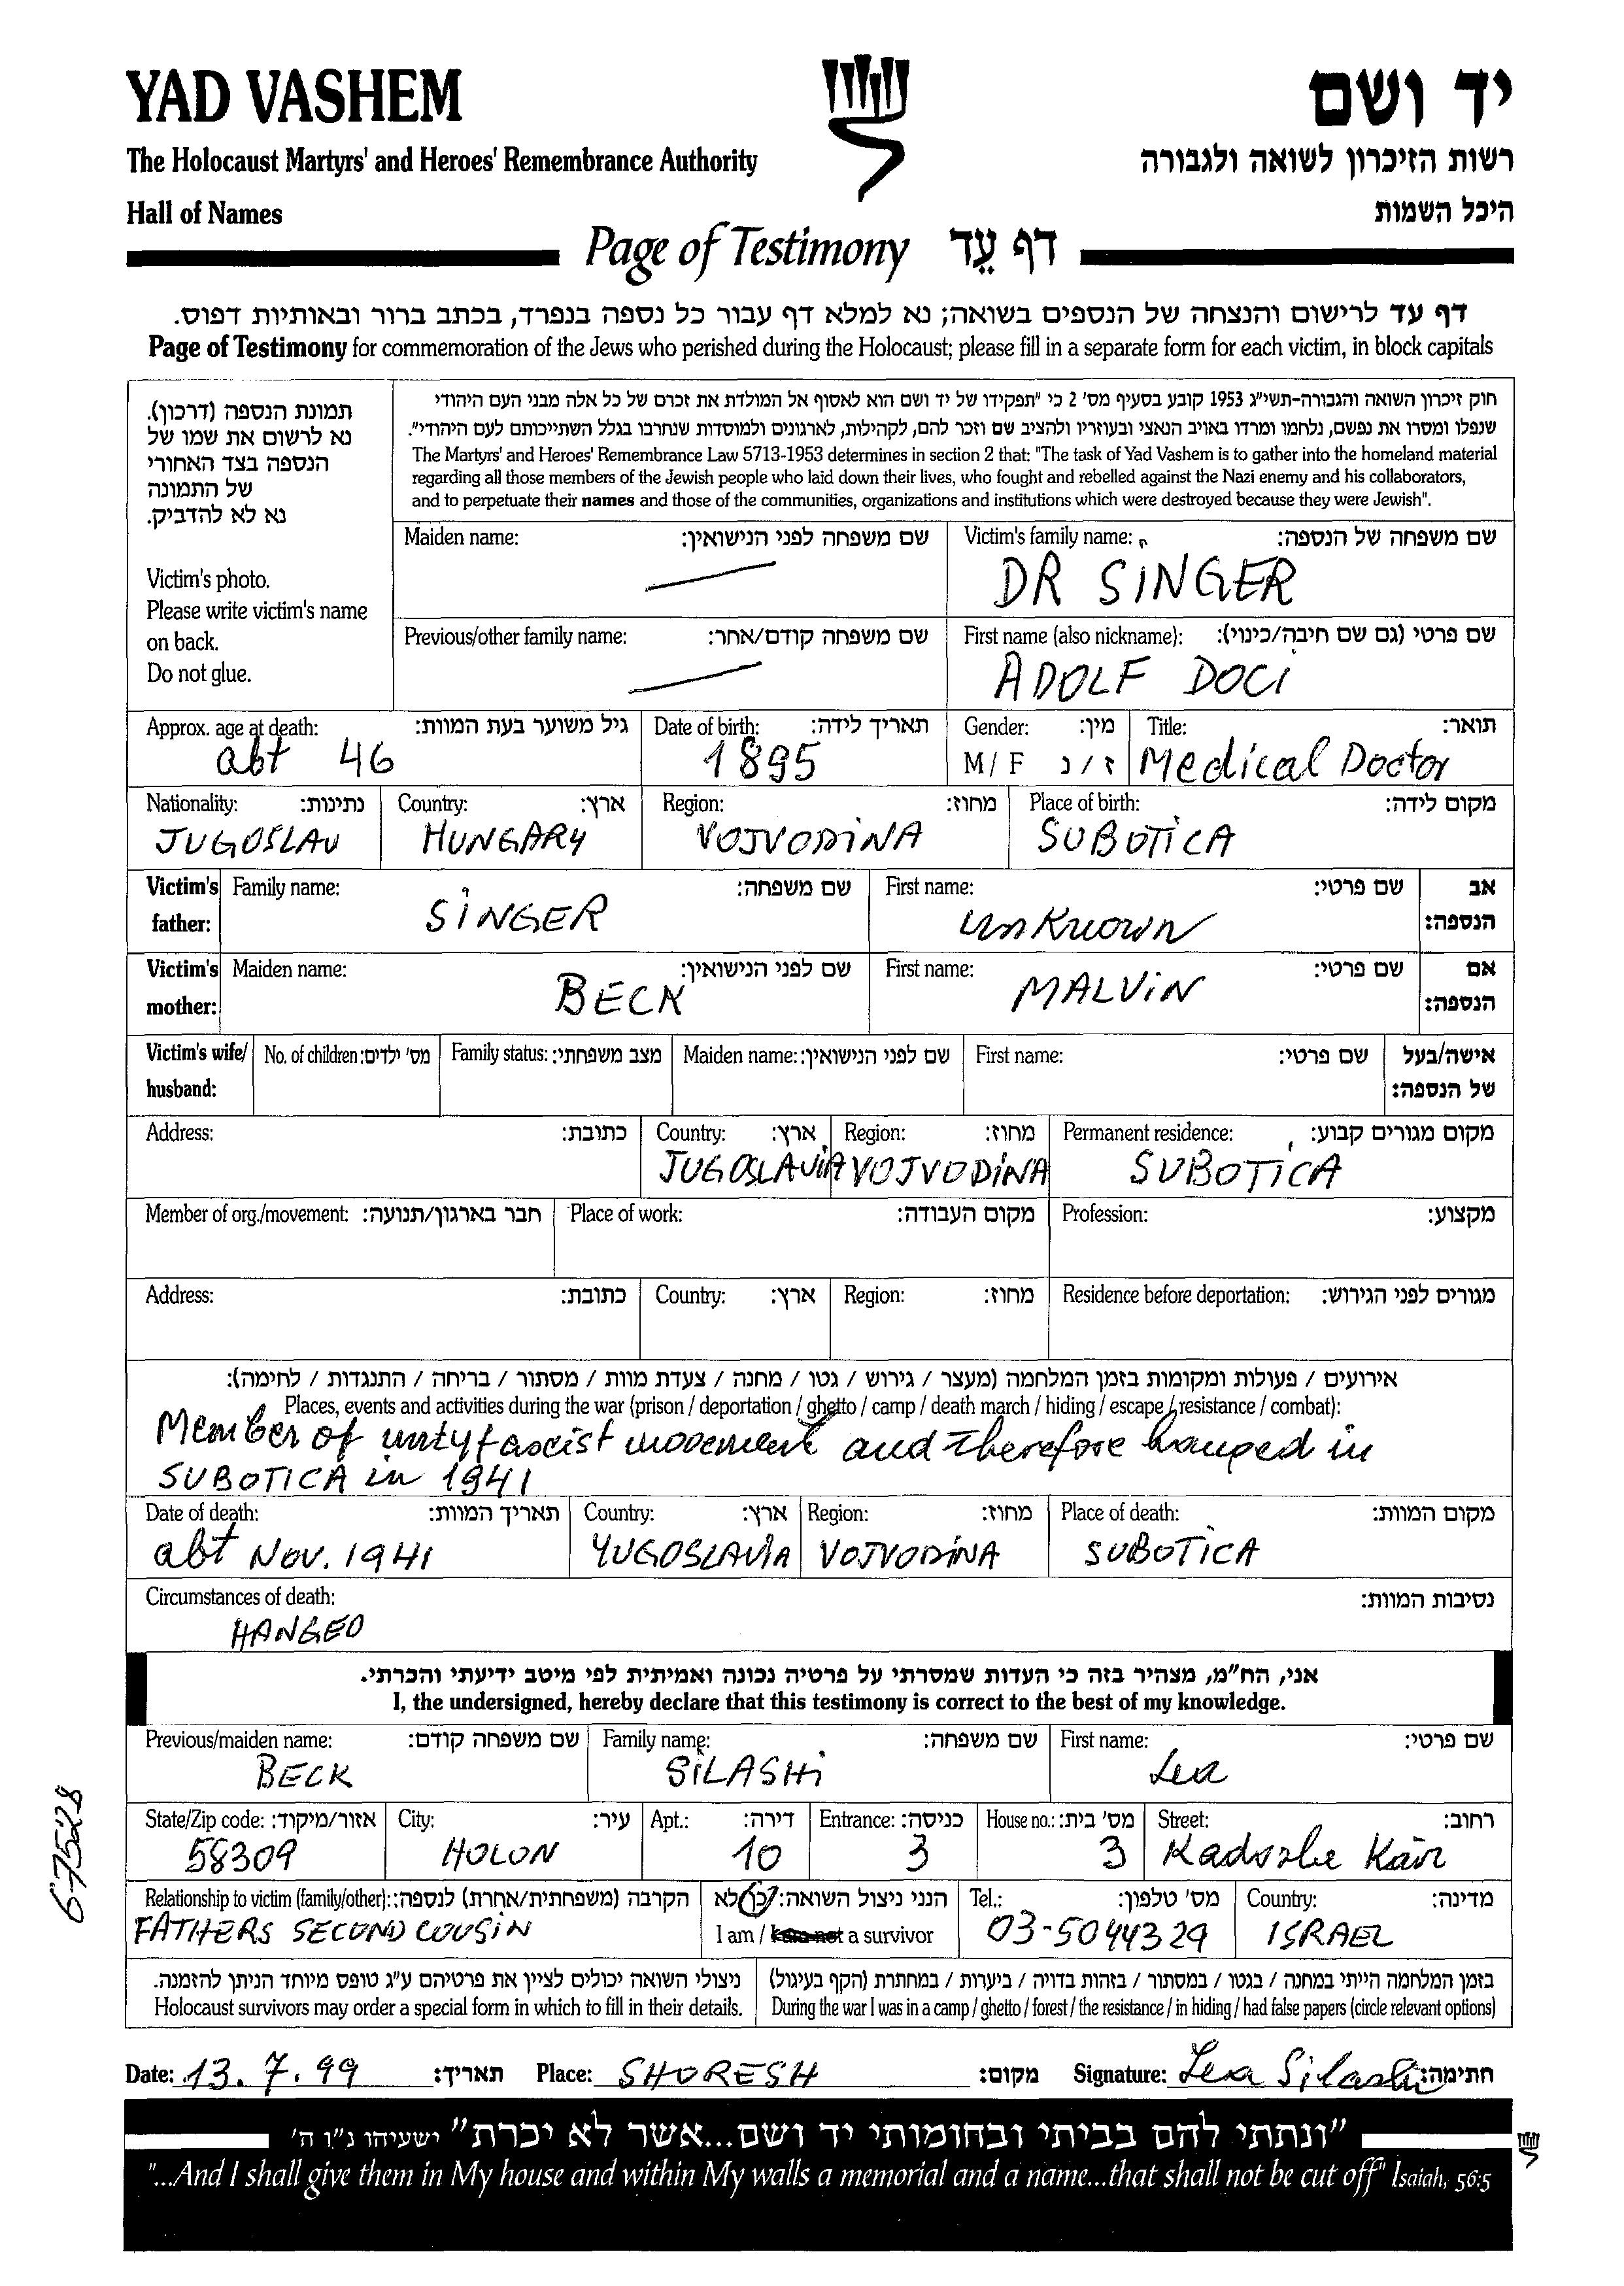 YAD VASHEM
יד ושם
The Holocaust Martyrs' and Heroes' Remembrance Authority
רשות הזיכרון לשואה ולגבורה
Hall of Names
היכל השמות
Page of Testimony דף עֵד
דף עד לרישום והנצחה של הנספים בשואה; נא למלא דף עבור כל נספה בנפרד, בכתב ברור ובאותיות דפוס.
Page of Testimony for commemoration of the Jews who perished during the Holocaust; please fill in a separate form for each victim, in block capitals
תמונת הנספה (דרכון).
נא לרשום את שמו של
הנספה בצד האחורי
של התמונה
נא לא להדביק.
Victim's photo.
Please write victim's name
on back.
Do not glue.
חוק זיכרון השואה והגבורה-תשי"ג 1953 קובע בסעיף מס' 2 כי "תפקידו של יד ושם הוא לאסוף אל המולדת את זכרם של כל אלה מבני העם היהודי
שנפלו ומסרו את נפשם, נלחמו ומרדו באויב הנאצי ובעוזריו ולהציב שם וזכר להם, לקהילות, לארגונים ולמוסדות שנחרבו בגלל השתייכותם לעם היהודי".
The Martyrs' and Heroes' Remembrance Law 5713-1953 determines in section 2 that: "The task of Yad Vashem is to gather into the homeland material
regarding all those members of the Jewish people who laid down their lives, who fought and rebelled against the Nazi enemy and his collaborators,
and to perpetuate their names and those of the communities, organizations and institutions which were destroyed because they were Jewish".
Maiden name: שם משפחה לפני הנישואין:
Victim's family name: שם משפחה של הנספה:
DR SINGER
Previous/other family name: שם משפחה קודם/אחר:
First name (also nickname): שם פרטי (גם שם חיבה/כינוי):
ADOLF DOCI
Approx. age at death: גיל משוער בעת המוות:
abt 46
Date of birth: תאריך לידה:
1895
Gender: מין:
M / F ז / נ
Title: תואר:
Medical Doctor
Nationality: נתינות:
JUGOSLAV
Country: ארץ:
HUNGARY
Region: מחוז:
VOJVODINA
Place of birth: מקום לידה:
SUBOTICA
Victim's father:
Family name: שם משפחה:
SINGER
First name: שם פרטי:
unknown
אב הנספה:
Victim's mother:
Maiden name: שם לפני הנישואין:
BECK
First name: שם פרטי:
MALVIN
אם הנספה:
Victim's wife/ husband:
No. of children: מס' ילדים:
Family status: מצב משפחתי:
Maiden name: שם לפני הנישואין:
First name: שם פרטי:
אישה/בעל של הנספה:
Address: כתובת:
Country: ארץ:
JUGOSLAVIA
Region: מחוז:
VOJVODINA
Permanent residence: מקום מגורים קבוע:
SUBOTICA
Member of org./movement: חבר בארגון/תנועה:
Place of work: מקום העבודה:
Profession: מקצוע:
Address: כתובת:
Country: ארץ:
Region: מחוז:
Residence before deportation: מגורים לפני הגירוש:
אירועים / פעולות ומקומות בזמן המלחמה (מעצר / גירוש / גטו / מחנה / צעדת מוות / מסתור / בריחה / התנגדות / לחימה):
Places, events and activities during the war (prison / deportation / ghetto / camp / death march / hiding / escape / resistance / combat):
Member of untyfascist movement and therefore hanged in
SUBOTICA in 1941
Date of death: תאריך המוות:
abt Nov. 1941
Country: ארץ:
YUGOSLAVIA
Region: מחוז:
VOJVODINA
Place of death: מקום המוות:
SUBOTICA
Circumstances of death: נסיבות המוות:
HANGED
אני, הח"מ, מצהיר בזה כי העדות שמסרתי על פרטיה נכונה ואמיתית לפי מיטב ידיעתי והכרתי.
I, the undersigned, hereby declare that this testimony is correct to the best of my knowledge.
Previous/maiden name: שם משפחה קודם:
BECK
Family name: שם משפחה:
SILASHI
First name: שם פרטי:
Lea
State/Zip code: אזור/מיקוד:
58309
City: עיר:
HOLON
Apt.: דירה:
10
Entrance: כניסה:
3
House no.: מס' בית:
3
Street: רחוב:
Kadszhe Kair
Relationship to victim (family/other): הקרבה (משפחתית/אחרת) לנספה:
FATHERS SECOND COUSIN
הנני ניצול השואה: כן/לא
I am / I am not a survivor
Tel.: מס' טלפון:
03-5044329
Country: מדינה:
ISRAEL
ניצולי השואה יכולים לציין את פרטיהם ע"ג טופס מיוחד הניתן להזמנה.
Holocaust survivors may order a special form in which to fill in their details.
בזמן המלחמה הייתי במחנה / בגטו / במסתור / בזהות בדויה / ביערות / במחתרת (הקף בעיגול)
During the war I was in a camp / ghetto / forest / the resistance / in hiding / had false papers (circle relevant options)
Date: 13.7.99 תאריך: Place: SHORESH מקום: Signature: Lea Silashi חתימה:
"ונתתי להם בביתי ובחומותי יד ושם...אשר לא יכרת" ישעיהו נ"ו ה'
"...And I shall give them in My house and within My walls a memorial and a name...that shall not be cut off" Isaiah, 56:5
67528